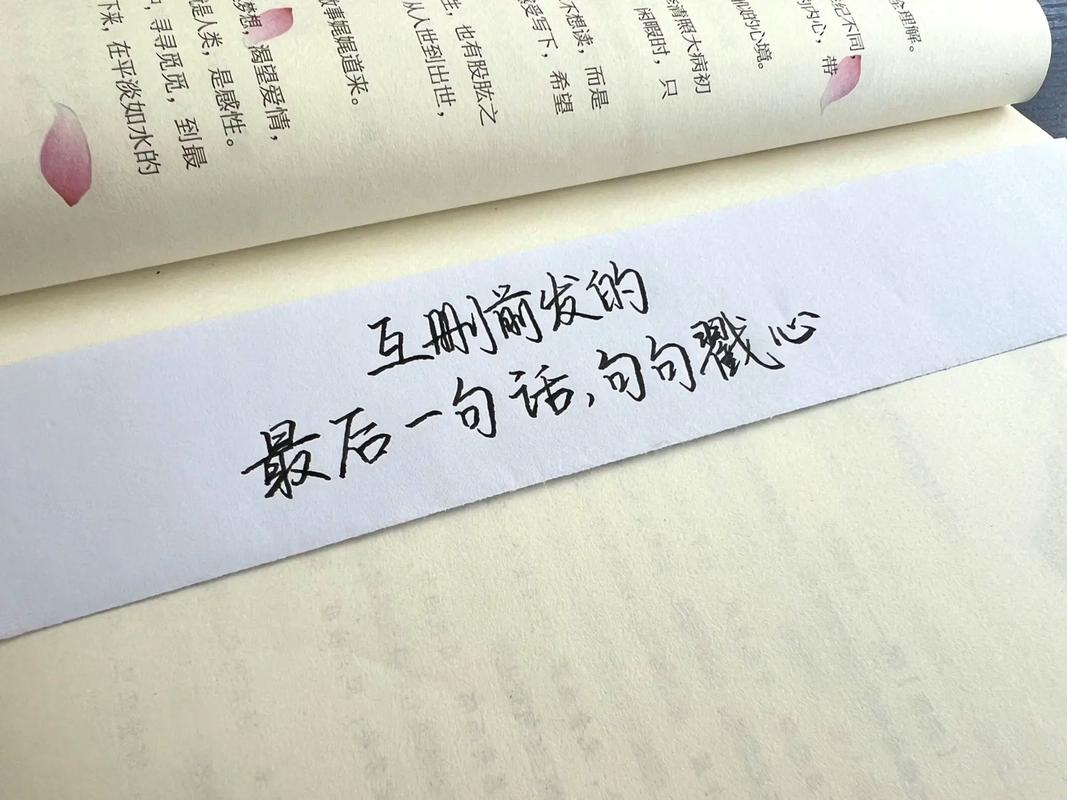 全理解。
纪不同,
的内心，带
似的心境。
清照大病初
闲暇时，只
不想读，而是
受写下，希望
生，也有股肱之
从人世到出世，
故事娓娓道来。
梦想，渴望爱情，
是人类，是感性。
寻寻觅觅，到最
下来，在平淡如水的
互删前发的
最后一句话,句句戳心